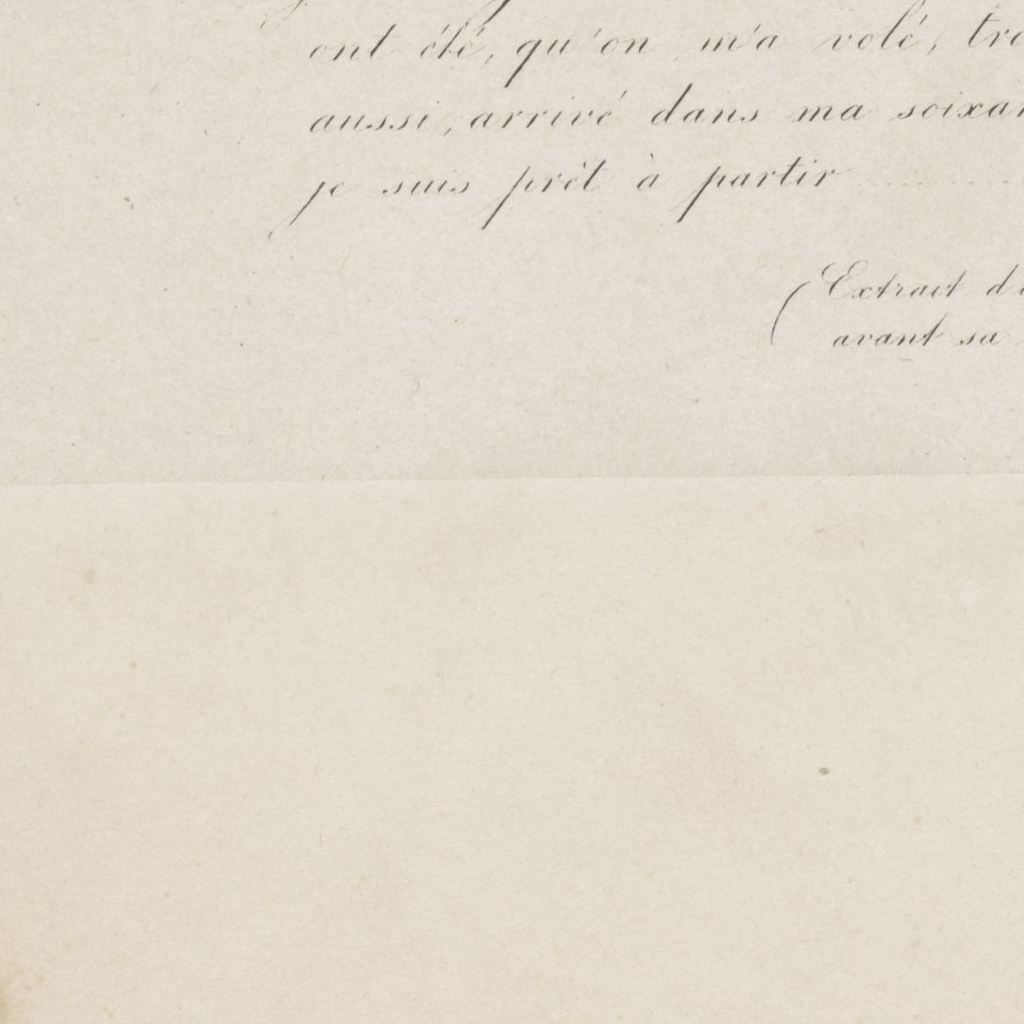 ont été, qu'on m'a volé, tro
aussi, arrivé dans ma soixan
je suis prêt à partir ........
(Extrait d'
avant sa